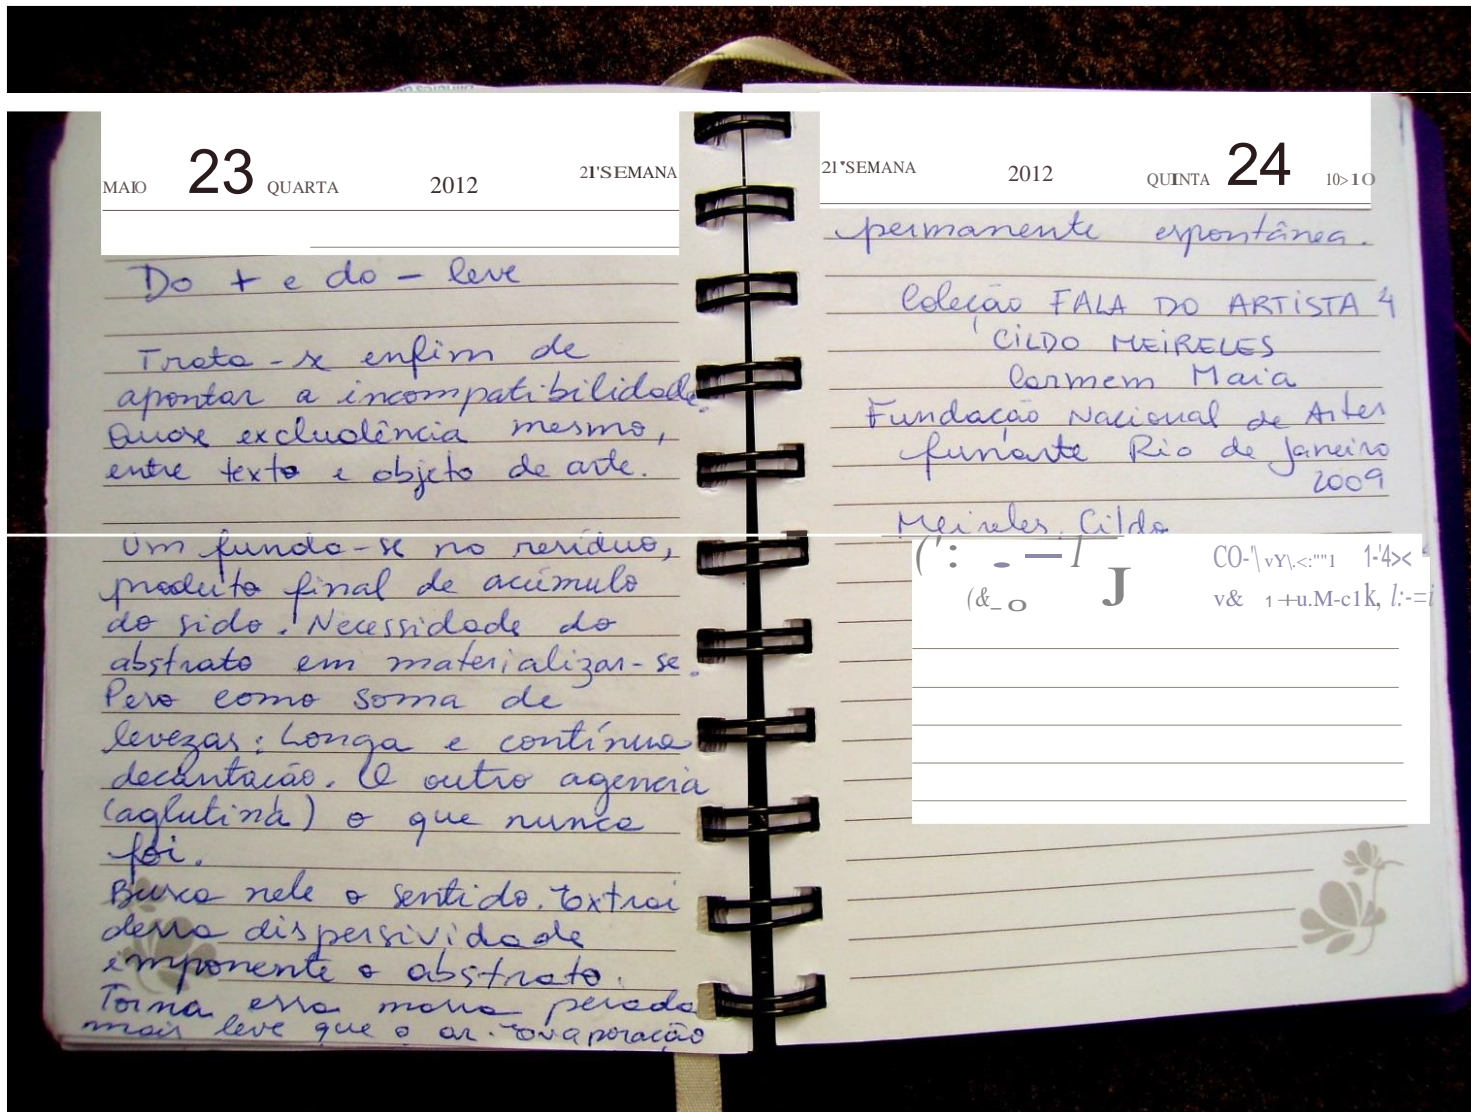 MAIO 23 QUARTA 2012 21ªSEMANA
Do + e do - leve
Trata-se enfim de
apontar a incompatibilidade.
Quase excludência mesmo,
entre texto e objeto de arte.
Um funda-se no resíduo,
produto final de acúmulo
do sido. Necessidade do
abstrato em materializar-se.
Peso como soma de
levezas: Longa e contínua
decantação. O outro agencia
(aglutina) o que nunca
foi.
Busca nele o sentido. Extrai
dessa dispersividade
emponente o abstrato.
Torna essa massa pesada
mais leve que o ar. Evaporação
21ªSEMANA 2012 QUINTA 24
permanente espontânea.
Coleção FALA DO ARTISTA 4
CILDO MEIRELES
Carmem Maia
Fundação Nacional de Artes
funarte Rio de Janeiro
2009
Meireles, Cildo